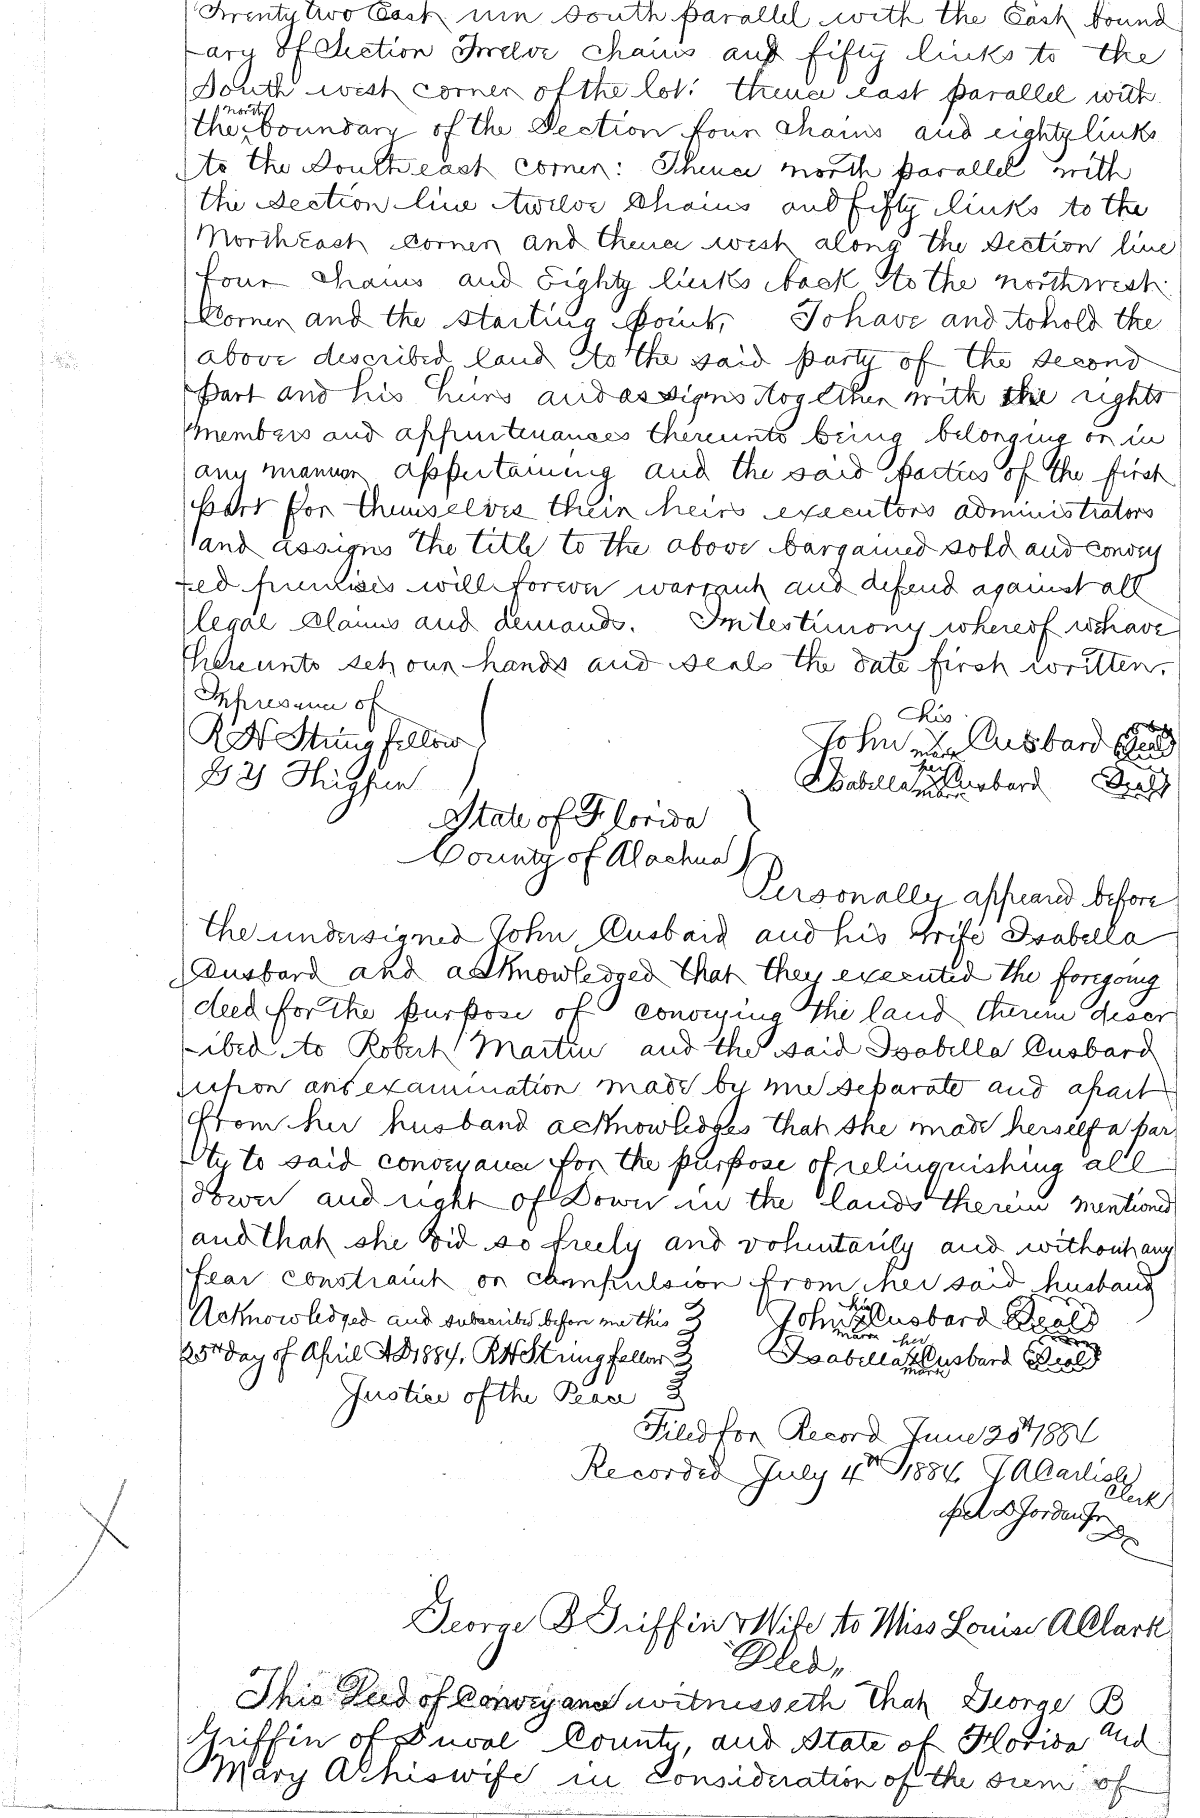 Twenty two East run South parallel with the East bound
-ary of Section Twelve chains and fifty links to the
South west corner of the lot: thence east parallel with
the north boundary of the Section four chains and eighty links
to the South east corner: Thence north parallel with
the Section line twelve chains and fifty links to the
North East corner and thence west along the Section line
four chains and Eighty links back to the northwest
Corner and the starting point, To have and to hold the
above described land to the said party of the second
part and his heirs and assigns together with the rights
members and appurtenances thereunto being belonging or in
any manner appertaining and the said parties of the first
part for themselves their heirs executors administrators
and assigns the title to the above bargained sold and convey
-ed premises will forever warrant and defend against all
legal claims and demands. In testimony whereof we have
hereunto set our hands and seals the date first written.
In presence of
R H Stringfellow
his
John X Cusbard Seal
mark
her
Isabella X Cusbard Seal
mark
State of Florida
County of Alachua
Personally appeared before
the undersigned John Cusbard and his wife Isabella
Cusbard and acknowledged that they executed the foregoing
deed for the purpose of conveying the land therein descr
-ibed to Robert Martin and the said Isabella Cusbard
upon an examination made by me separate and apart
from her husband acknowledges that she made herself a par
-ty to said conveyance for the purpose of relinquishing all
dower and right of Dower in the lands therein mentioned
and that she did so freely and voluntarily and without any
fear constraint or compulsion from her said husband
Acknowledged and subscribed before me this
25th day of April AD 1884. R H Stringfellow
Justice of the Peace
his
John X Cusbard Seal
mark her
Isabella X Cusbard Seal
mark
Filed for Record June 28th 1884
Recorded July 4th 1884. J A Carlisle
Clerk
per D Jordan Jr
DC
George B Griffin & Wife to Miss Louise A Clark
Deed
This Deed of Conveyance witnesseth that George B
Griffin of Duval County, and State of Florida and
Mary A his wife in consideration of the sum of